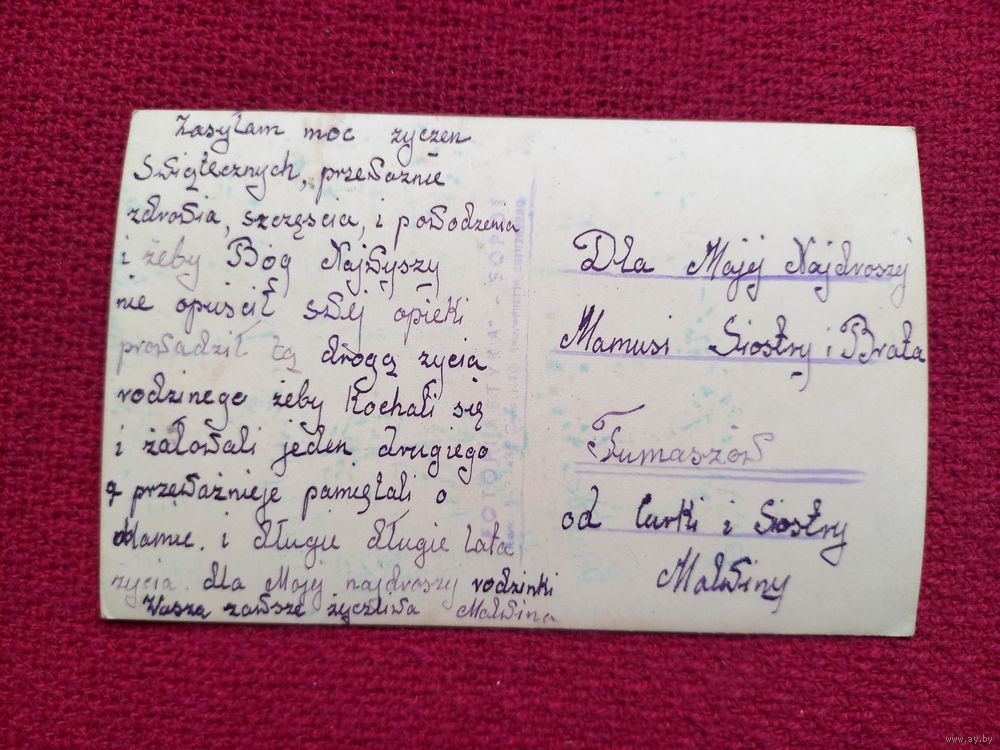 Zasyłam moc zyczen
Swiątecznych, przewaznie
zdrowia, szczęscia, i powodzenia
i żeby Bóg Najwyszy
nie opuscił swej opieki
prowadził tą drogą zycia
rodzinego żeby Kochali się
i załowali jeden drugiego
a przewaznieje pamiętali o
Mamie. i długie długie lata
zycia. dla Mojej najdroszy rodzinki
Wasza zawsze życzliwa Malwina
Dla Mojej Najdroszej
Mamusi Siostry i Brata
Tumaszów
od Curki i Siostry
Malwiny
FOTOPLASTYKA - SOPOT
www.ay.by